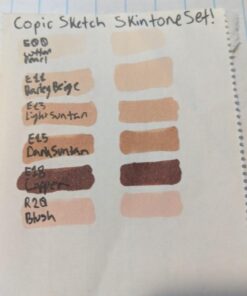 Copic Sketch Skintone Set!
E00
Cotton
Pearl
E11
Barley Beige
E13
Light Suntan
E15
Dark Suntan
E18
Copper
R20
Blush